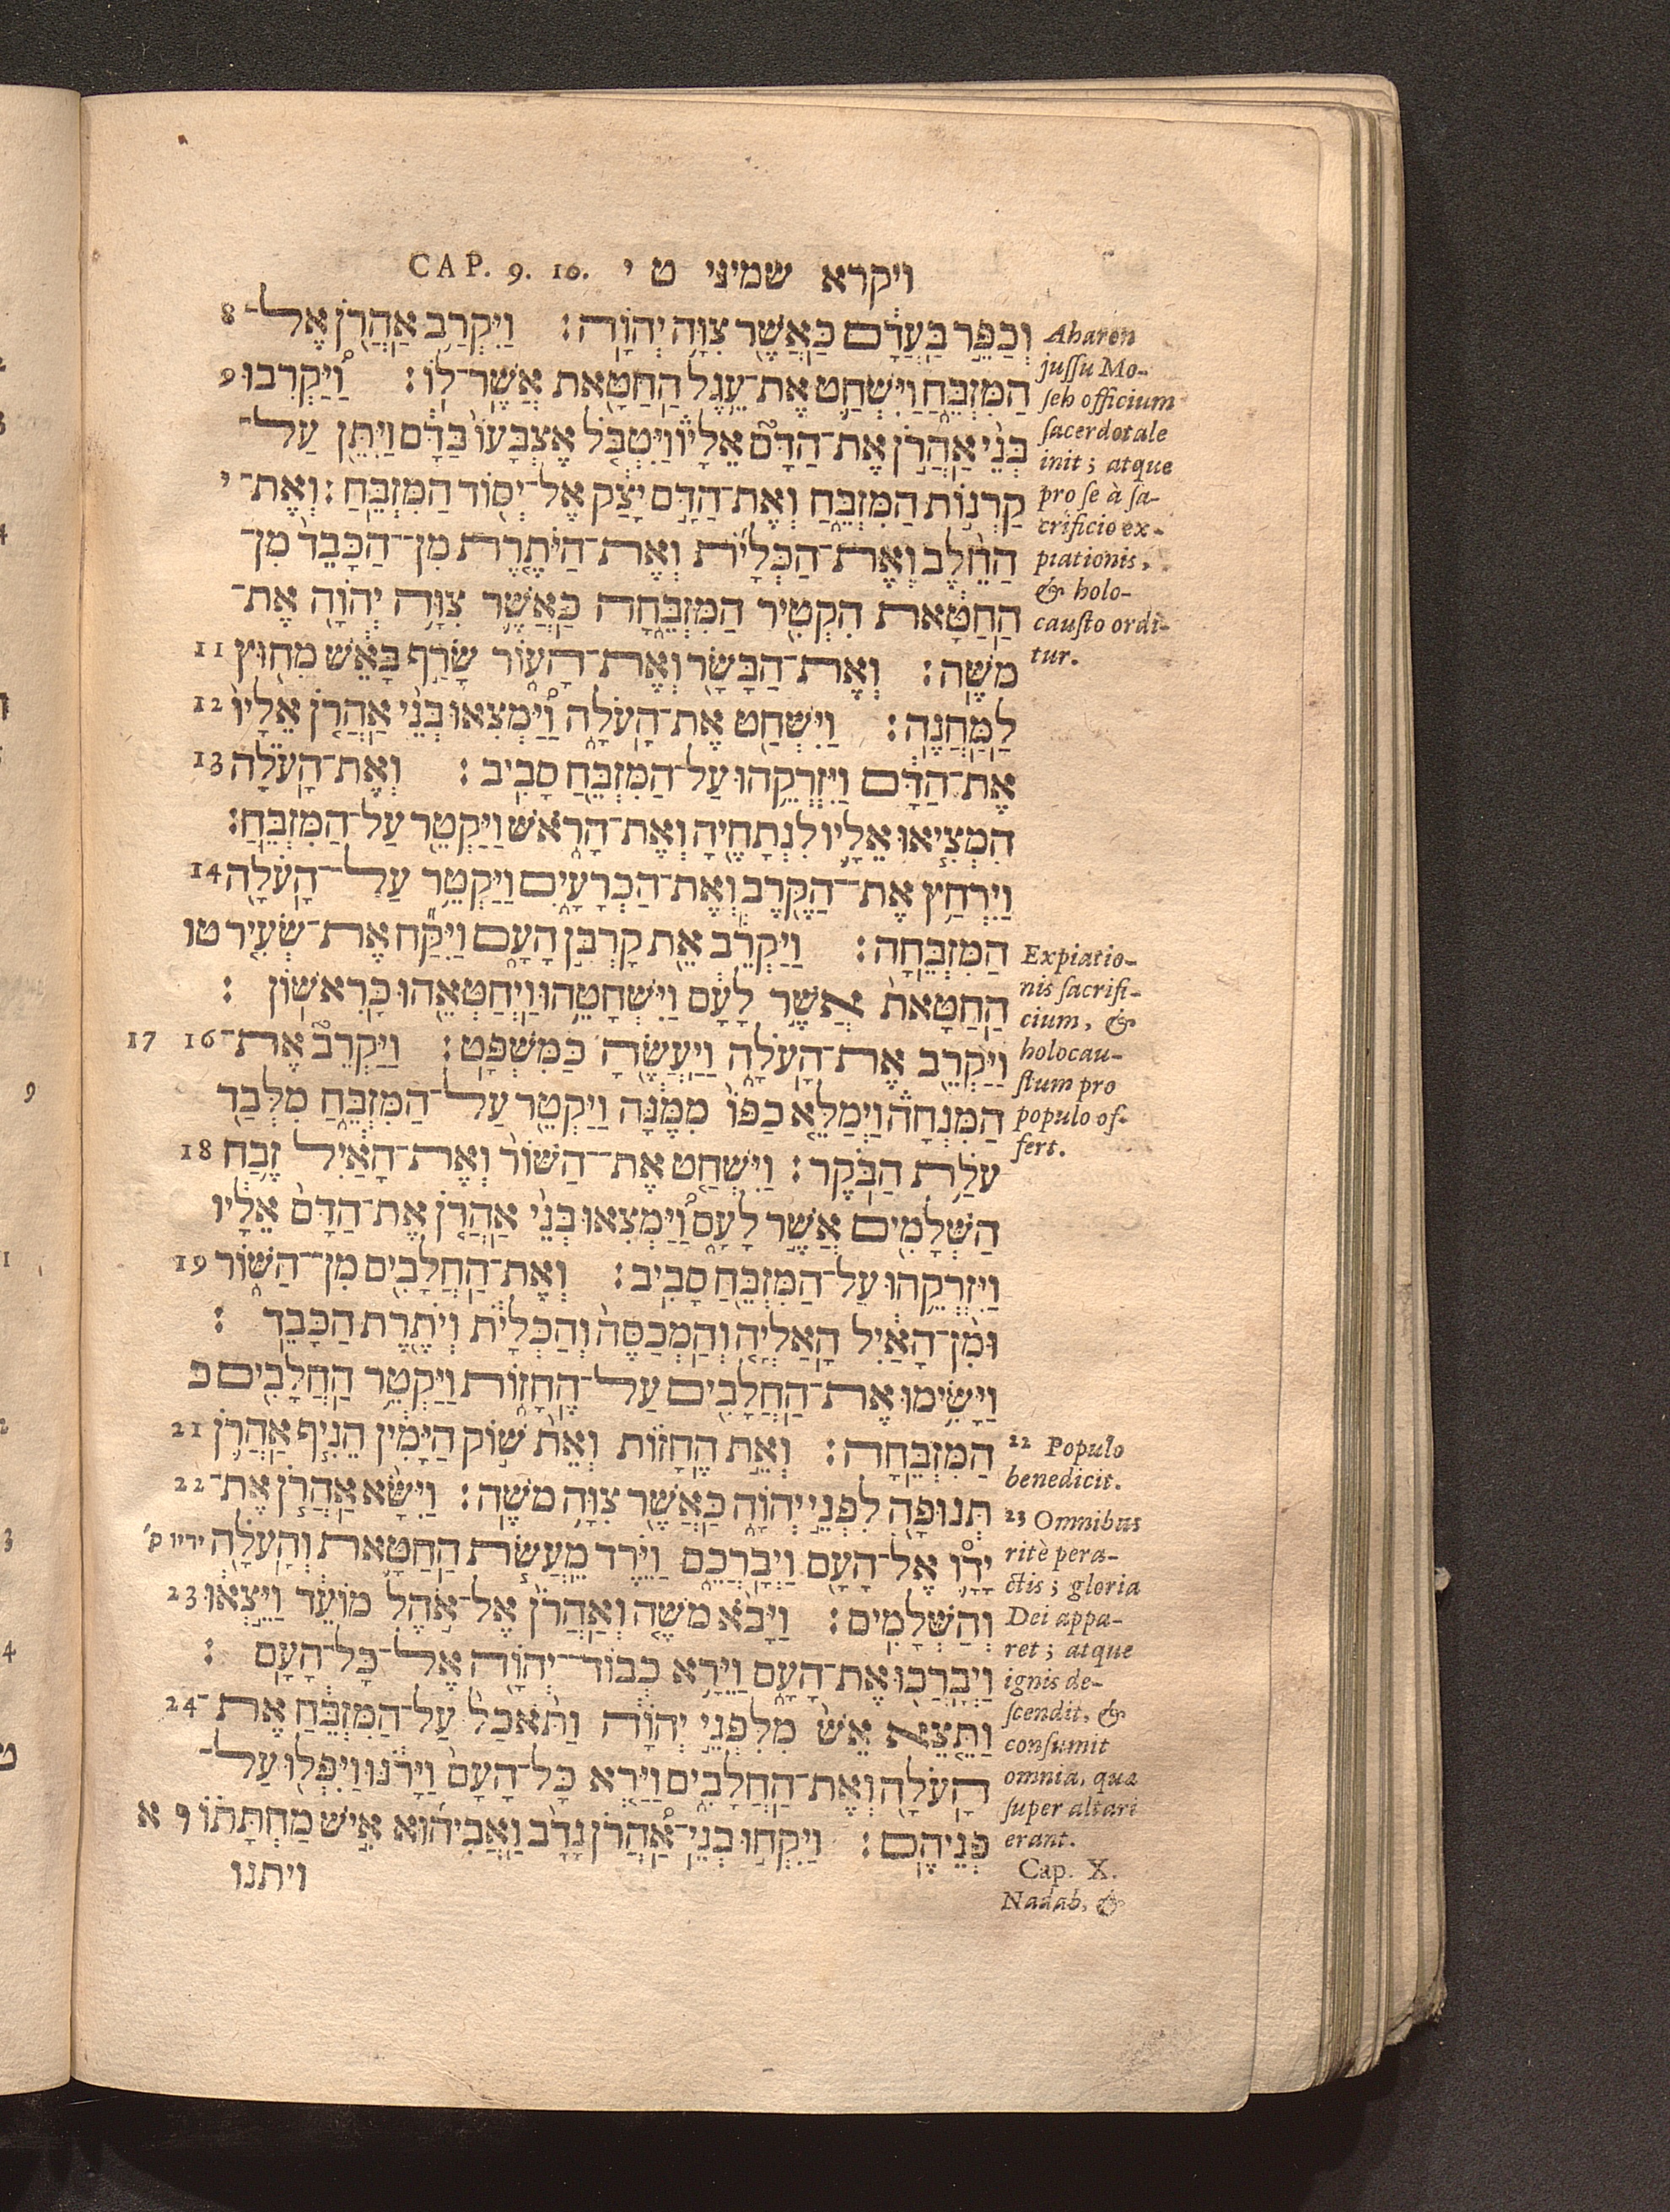 ויקרא שמיני ט י CAP. 9. 10.
וְכַפֵּר בַּעֲדָם כַּאֲשֶׁר צִוָּה יְהוָה׃ וַיִּקְרַב אַהֲרֹן אֶל־ 8
הַמִּזְבֵּחַ וַיִּשְׁחַט אֶת־עֵגֶל הַחַטָּאת אֲשֶׁר־לוֹ׃ וַיַּקְרִבוּ 9
בְּנֵי אַהֲרֹן אֶת־הַדָּם אֵלָיו וַיִּטְבֹּל אֶצְבָּעוֹ בַּדָּם וַיִּתֵּן עַל־
קַרְנוֹת הַמִּזְבֵּחַ וְאֶת־הַדָּם יָצַק אֶל־יְסוֹד הַמִּזְבֵּחַ׃ וְאֶת־ י
הַחֵלֶב וְאֶת־הַכְּלָיֹת וְאֶת־הַיֹּתֶרֶת מִן־הַכָּבֵד מִן־
הַחַטָּאת הִקְטִיר הַמִּזְבֵּחָה כַּאֲשֶׁר צִוָּה יְהוָה אֶת־
מֹשֶׁה׃ וְאֶת־הַבָּשָׂר וְאֶת־הָעוֹר שָׂרַף בָּאֵשׁ מִחוּץ 11
לַמַּחֲנֶה׃ וַיִּשְׁחַט אֶת־הָעֹלָה וַיַּמְצִאוּ בְּנֵי אַהֲרֹן אֵלָיו 12
אֶת־הַדָּם וַיִּזְרְקֵהוּ עַל־הַמִּזְבֵּחַ סָבִיב׃ וְאֶת־הָעֹלָה 13
הִמְצִיאוּ אֵלָיו לִנְתָחֶיהָ וְאֶת־הָרֹאשׁ וַיַּקְטֵר עַל־הַמִּזְבֵּחַ׃
וַיִּרְחַץ אֶת־הַקֶּרֶב וְאֶת־הַכְּרָעָיִם וַיַּקְטֵר עַל־הָעֹלָה 14
הַמִּזְבֵּחָה׃ וַיַּקְרֵב אֵת קָרְבַּן הָעָם וַיִּקַּח אֶת־שְׂעִיר טו
הַחַטָּאת אֲשֶׁר לָעָם וַיִּשְׁחָטֵהוּ וַיְחַטְּאֵהוּ כָּרִאשׁוֹן׃
וַיַּקְרֵב אֶת־הָעֹלָה וַיַּעֲשֶׂהָ כַּמִּשְׁפָּט׃ וַיַּקְרֵב אֶת־ 16 17
הַמִּנְחָה וַיְמַלֵּא כַפּוֹ מִמֶּנָּה וַיַּקְטֵר עַל־הַמִּזְבֵּחַ מִלְּבַד
עֹלַת הַבֹּקֶר׃ וַיִּשְׁחַט אֶת־הַשּׁוֹר וְאֶת־הָאַיִל זֶבַח 18
הַשְּׁלָמִים אֲשֶׁר לָעָם וַיַּמְצִאוּ בְּנֵי אַהֲרֹן אֶת־הַדָּם אֵלָיו
וַיִּזְרְקֵהוּ עַל־הַמִּזְבֵּחַ סָבִיב׃ וְאֶת־הַחֲלָבִים מִן־הַשּׁוֹר 19
וּמִן־הָאַיִל הָאַלְיָה וְהַמְכַסֶּה וְהַכְּלָיֹת וְיֹתֶרֶת הַכָּבֵד׃
וַיָּשִׂימוּ אֶת־הַחֲלָבִים עַל־הֶחָזוֹת וַיַּקְטֵר הַחֲלָבִים כ
הַמִּזְבֵּחָה׃ וְאֵת הֶחָזוֹת וְאֵת שׁוֹק הַיָּמִין הֵנִיף אַהֲרֹן 21
תְּנוּפָה לִפְנֵי יְהוָה כַּאֲשֶׁר צִוָּה מֹשֶׁה׃ וַיִּשָּׂא אַהֲרֹן אֶת־ 22
יָדָו אֶל־הָעָם וַיְבָרְכֵם וַיֵּרֶד מֵעֲשֹׂת הַחַטָּאת וְהָעֹלָה ידיו ק׳
וְהַשְּׁלָמִים׃ וַיָּבֹא מֹשֶׁה וְאַהֲרֹן אֶל־אֹהֶל מוֹעֵד וַיֵּצְאוּ 23
וַיְבָרְכוּ אֶת־הָעָם וַיֵּרָא כְבוֹד־יְהוָה אֶל־כָּל־הָעָם׃
וַתֵּצֵא אֵשׁ מִלִּפְנֵי יְהוָה וַתֹּאכַל עַל־הַמִּזְבֵּחַ אֶת־ 24
הָעֹלָה וְאֶת־הַחֲלָבִים וַיַּרְא כָּל־הָעָם וַיָּרֹנּוּ וַיִּפְּלוּ עַל־
פְּנֵיהֶם׃ וַיִּקְחוּ בְנֵי־אַהֲרֹן נָדָב וַאֲבִיהוּא אִישׁ מַחְתָּתוֹ א
ויתנו
Aharon
jussu Mo-
seh officium
sacerdotale
init; atque
pro se à sa-
crificio ex-
piationis,
& holo-
causto ordi-
tur.
Expiatio-
nis sacrifi-
cium, &
holocau-
stum pro
populo of-
fert.
22 Populo
benedicit.
23 Omnibus
ritè pera-
ctis; gloria
Dei appa-
ret; atque
ignis de-
scendit, &
consumit
omnia, quæ
super altari
erant.
Cap. X.
Nadab, &